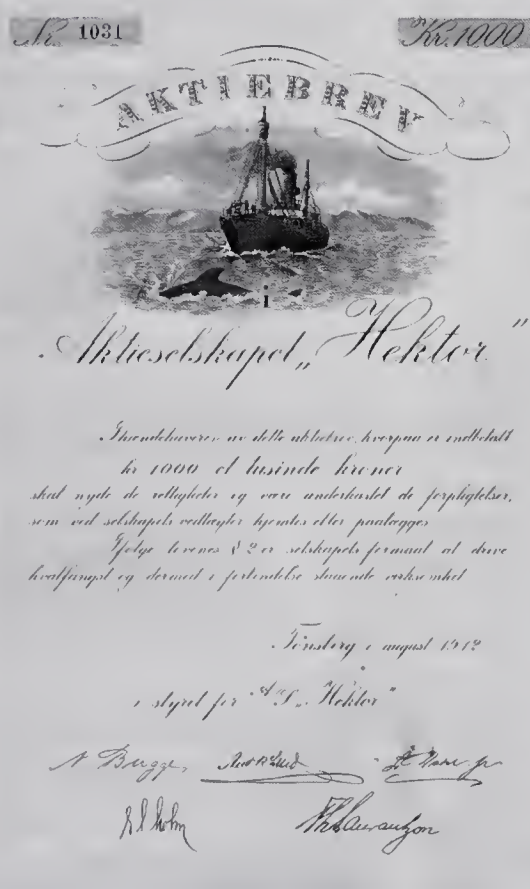 Nr. 1031
Kr. 1000
AKTIEBREV
i
Aktieselskapet „Hektor”
Ihændehaveren av dette aktiebrev, hvorpaa er indbetalt
kr 1000 et tusinde kroner
skal nyde de rettigheter og være underkastet de forpligtelser,
som ved selskapets vedtægter hjemles eller paalægges
Ifølge lovenes § 2 er selskapets formaal at drive
hvalfangst og dermed i forbindelse staaende virksomhet
Tønsberg i august 1912
i styret for A/S „Hektor”
N Bugge,